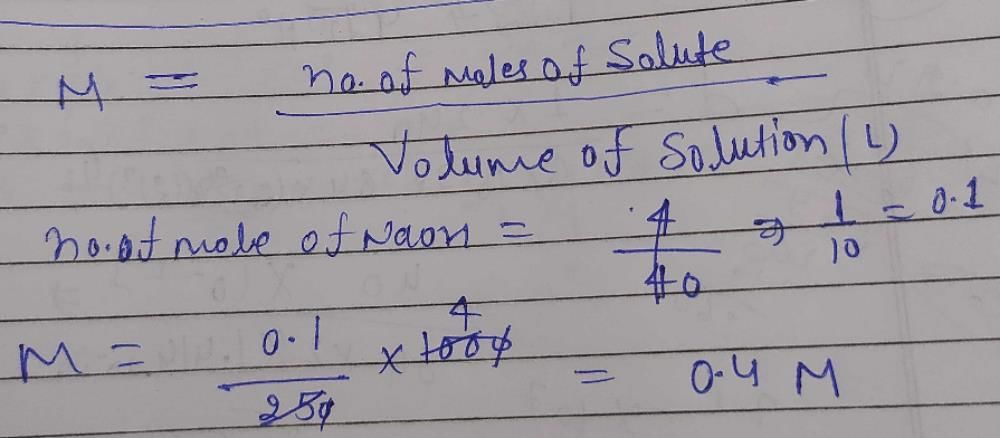 M = no. of moles of Solute
Volume of Solution (L)
no. of mole of NaOH = 4/40 ⇒ 1/10 = 0.1
M = 0.1/250 × 1000 4 = 0.4 M